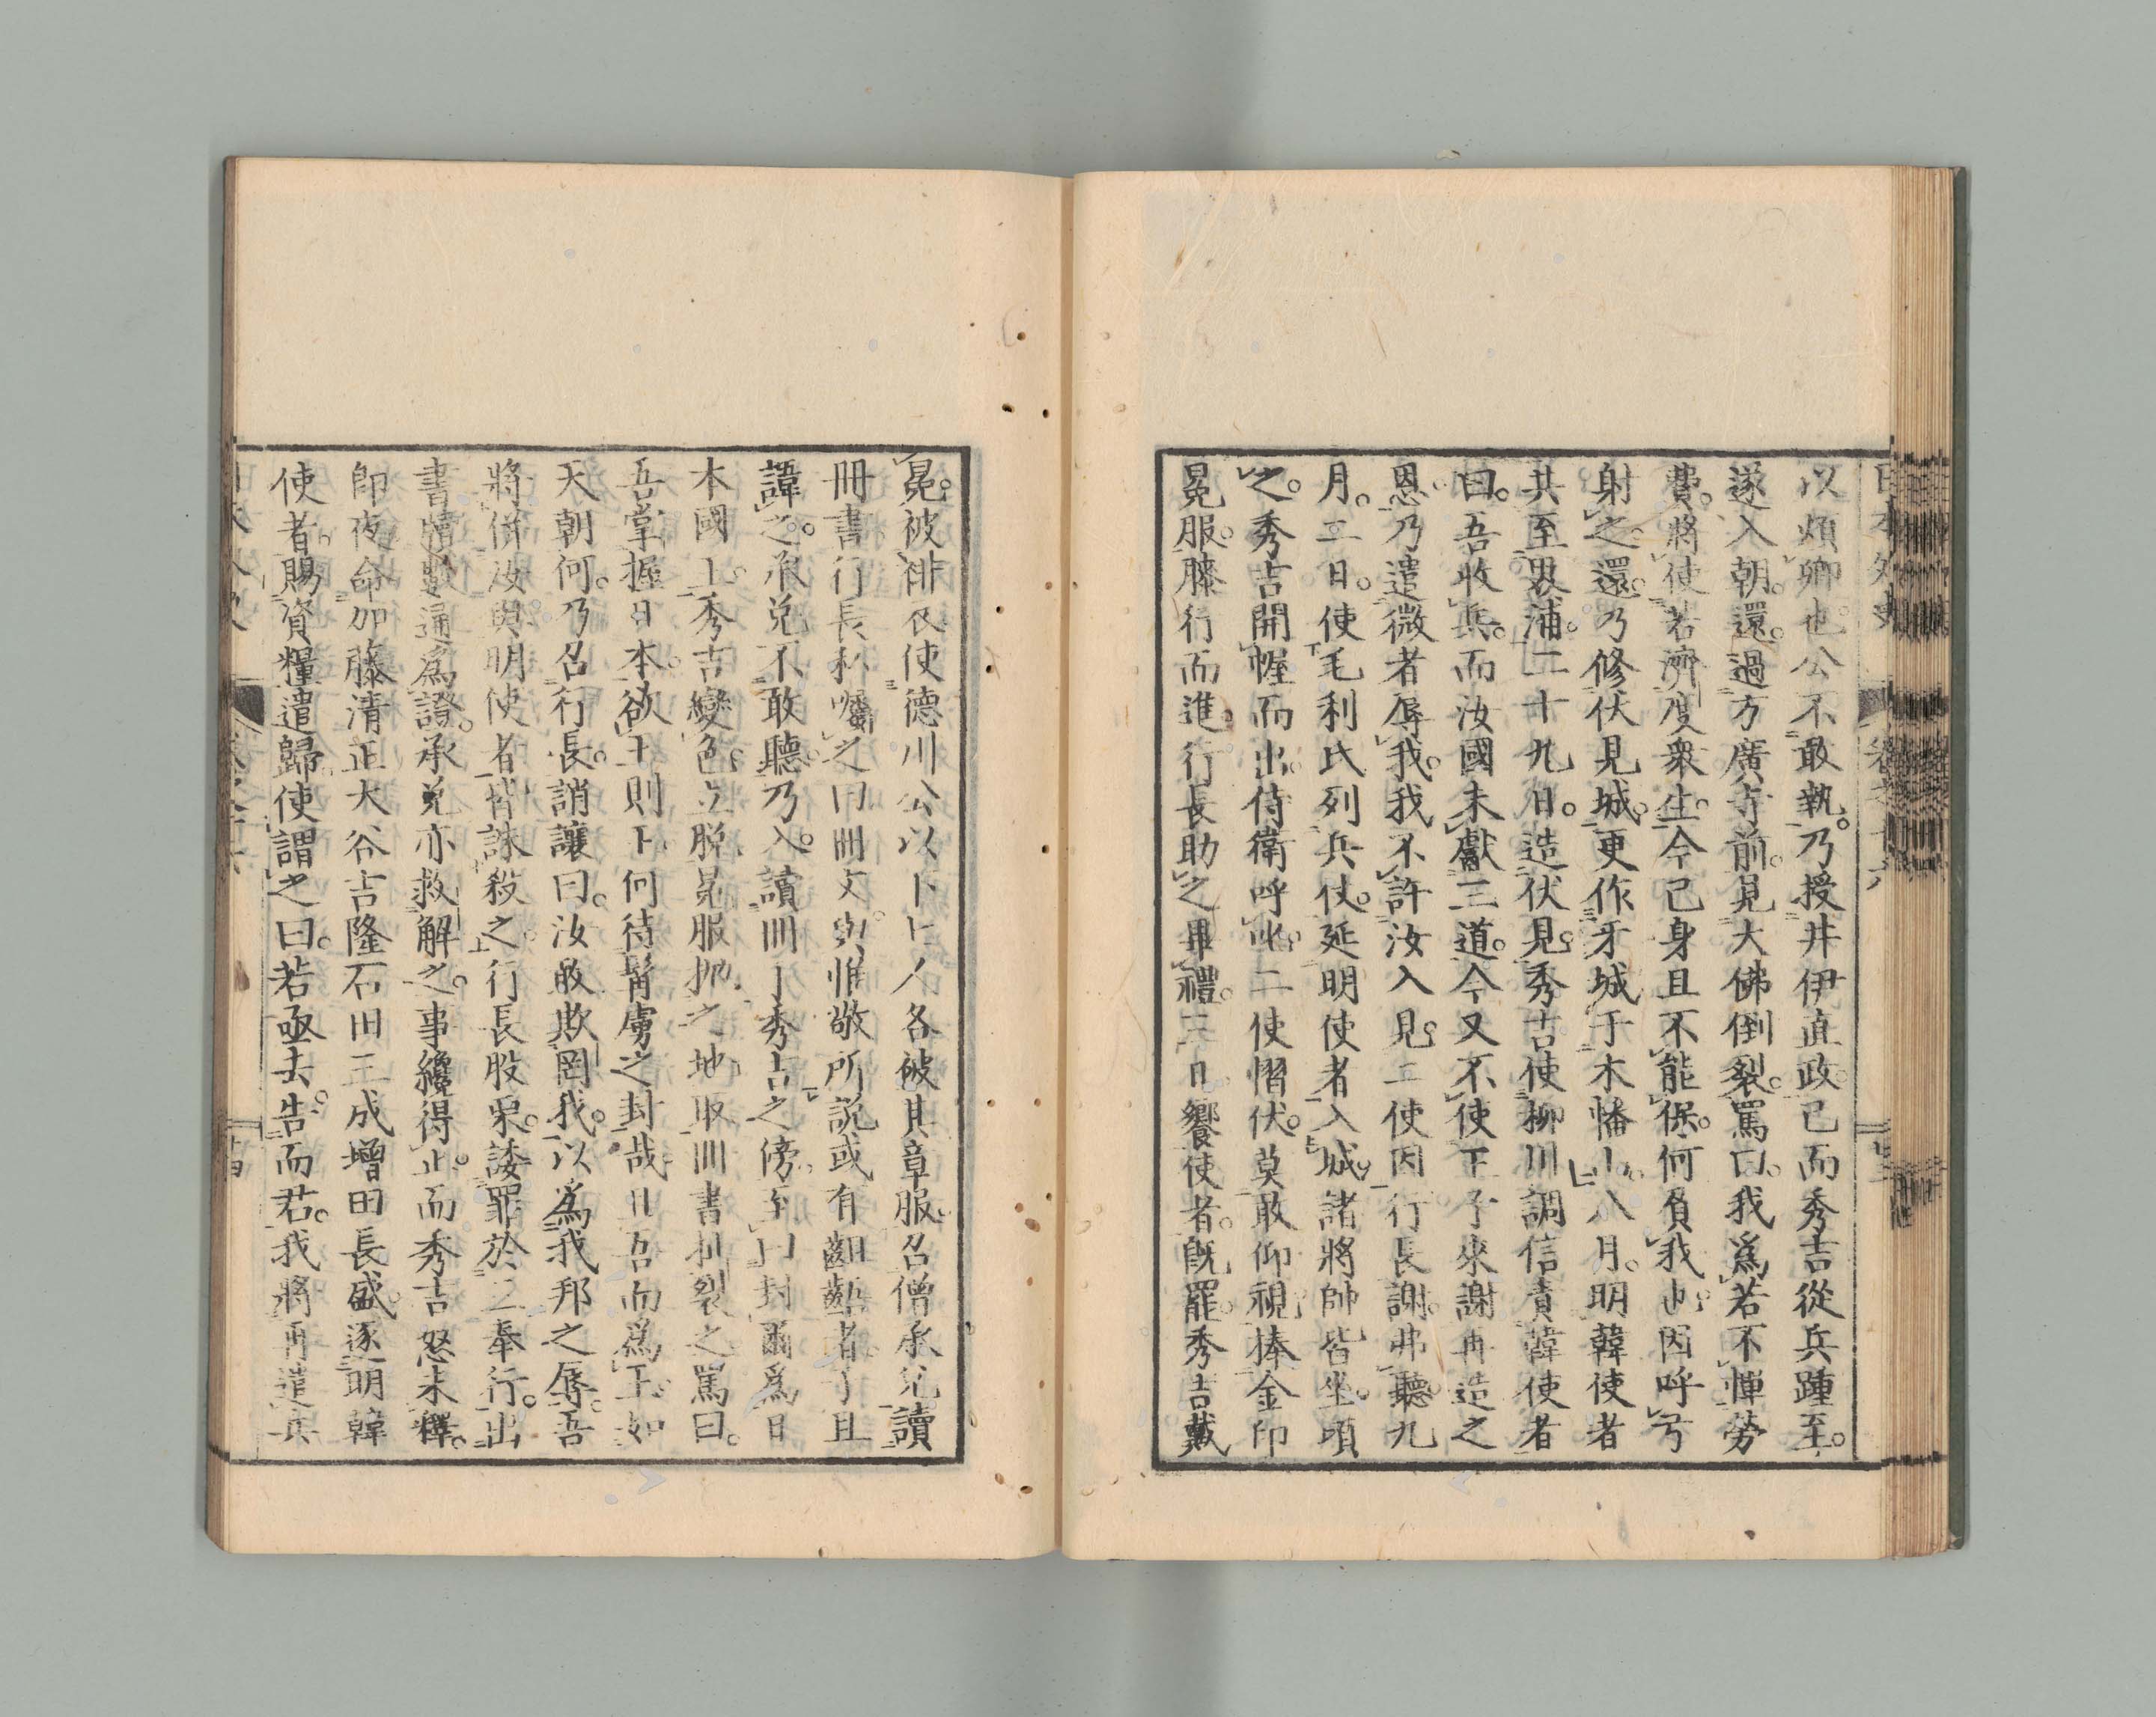 日本外史 卷之十六
以煩卿也公不敢執乃授井伊直政已而秀吉從兵踵至
遂入朝還過方廣寺前見大佛倒裂罵曰我爲若不憚勞
費將使若濟度衆生今己身且不能保何負我也因呼弓
射之還乃修伏見城更作牙城于木幡山八月明韓使者
共至界浦二十九日造伏見秀吉使柳川調信責韓使者
曰吾收兵而汝國未獻三道今又不使王子來謝再造之
恩乃遣微者辱我我不許汝入見二使因行長謝弗聽九
月二日使毛利氏列兵仗延明使者入城諸將帥皆坐頃
之秀吉開幄而出侍衛呼叱二使慴伏莫敢仰視捧金印
冕服膝行而進行長助之畢禮三日饗使者既罷秀吉戴
冕被緋衣使德川公以下七人各被其章服召僧承兌讀
冊書行長私囑之曰冊文與惟敬所説或有齟齬者子且
諱之承兌不敢聽乃入讀冊于秀吉之傍至曰封爾爲日
本國王秀吉變色立脱冕服抛之地取冊書扯裂之罵曰
吾掌握日本欲王則王何待髯虜之封哉且吾而爲王如
天朝何乃召行長誚讓曰汝敢欺罔我以爲我邦之辱吾
將併汝與明使者皆誅殺之行長股栗諉罪於三奉行出
書牘數通爲證承兌亦救解之事纔得止而秀吉怒未釋
即夜命加藤清正大谷吉隆石田三成增田長盛逐明韓
使者賜資糧遣歸使謂之曰若亟去告而君我將再遣兵